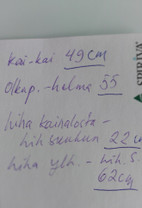 kai-kai 49cm
Olkap.-helma 55
hiha kainalosta -
hih suuhun 22cm
hiha ylh. - hih. S.
62cm
SPIRIVA